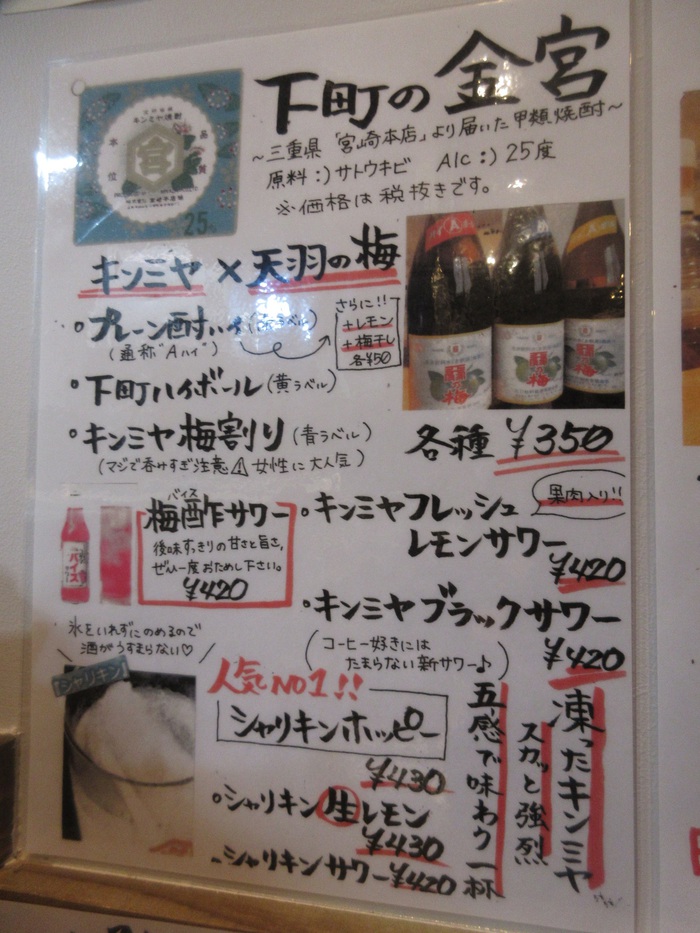 下町の金宮
～三重県「宮崎本店」より届いた甲類焼酎～
原料:)サトウキビ Alc:)25度
※価格は税抜きです。
キンミヤ焼酎
品質
本位
宮
25
キンミヤ×天羽の梅
さらに!!
+レモン
+梅干し
各¥50
(通称"Aハイ")
・下町ハイボール(黄ラベル)
・キンミヤ梅割り(青ラベル)
(マジで呑みすぎ注意⚠女性に大人気)
各種 ¥350
バイス
梅酢サワー
後味すっきりの甘さと旨さ。
ぜひ一度おためし下さい。
¥420
バイス
・キンミヤフレッシュ
レモンサワー
果肉入り!!
¥420
・キンミヤブラックサワー
(コーヒー好きには
たまらない新サワー♪)
¥420
氷をいれずにのめるので
酒がうすまらない♡
シャリキン
人気NO1!!
シャリキンホッピー
¥430
・シャリキン生レモン
¥430
・シャリキンサワー¥420
凍ったキンミヤ
スカッと強烈
五感で味わう一杯